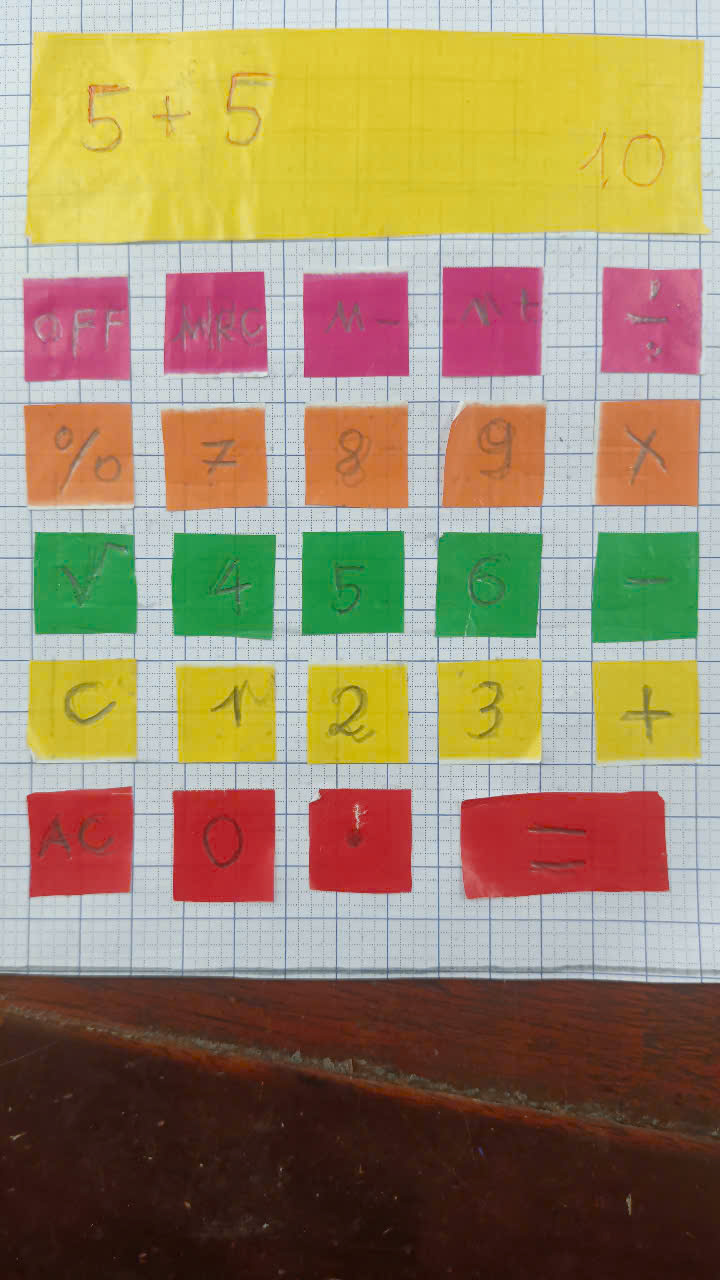 5 + 5
10
OFF MRC M- M+ ÷
% 7 8 9 X
√ 4 5 6 -
C 1 2 3 +
AC 0 . =